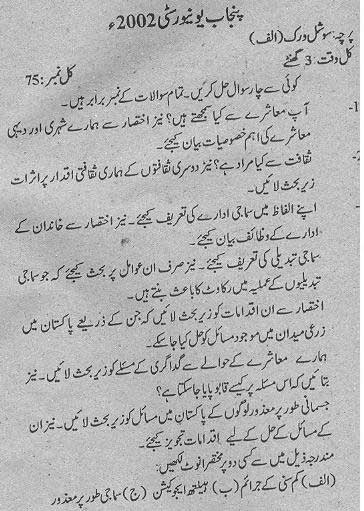 پنجاب یونیورسٹی 2002ء
پرچہ: سوشل ورک (الف)
کل وقت: 3 گھنٹے
کل نمبر: 75
کوئی سے چار سوال حل کریں۔ تمام سوالات کے نمبر برابر ہیں۔
1- آپ معاشرے سے کیا سمجھتے ہیں؟ نیز اختصار سے ہمارے شہری اور دیہی
معاشرے کی اہم خصوصیات بیان کیجئے۔
2- ثقافت سے کیا مراد ہے؟ نیز دوسری ثقافتوں کے ہماری ثقافتی اقدار پر اثرات
زیر بحث لائیں۔
اپنے الفاظ میں سماجی ادارے کی تعریف کیجئے۔ نیز اختصار سے خاندان کے
ادارے کے وظائف بیان کیجئے۔
سماجی تبدیلی کی تعریف کیجئے۔ نیز صرف ان عوامل پر بحث کیجئے کہ جو سماجی
تبدیلیوں کے عملیہ میں رکاوٹ کا باعث بنتے ہیں۔
اختصار سے ان اقدامات کو زیر بحث لائیں کہ جن کے ذریعے پاکستان میں
زرعی میدان میں موجود مسائل کو حل کیا جا سکے۔
ہمارے معاشرے کے حوالے سے گداگری کے مسئلے کو زیر بحث لائیں۔ نیز
بتائیں کہ اس مسئلہ پر کیسے قابو پایا جا سکتا ہے؟
جسمانی طور پر معذور لوگوں کے پاکستان میں مسائل کو زیر بحث لائیں۔ نیز ان
کے مسائل کے حل کے لیے اقدامات تجویز کیجئے۔
مندرجہ ذیل میں سے کسی دو پر مختصر انوٹ لکھیں:
(الف) کم سنی کے جرائم (ب) ہیلتھ ایجوکیشن (ج) سماجی طور پر معذور